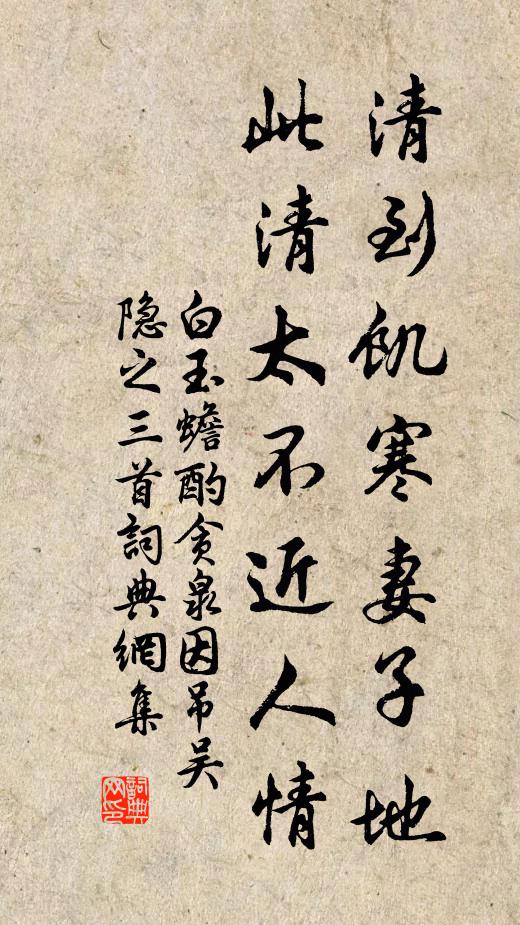 清到飢寒妻子地
此清太不近人情
白玉蟾酌贪泉因吊吴
隐之三首詞典網集
詞典
网印